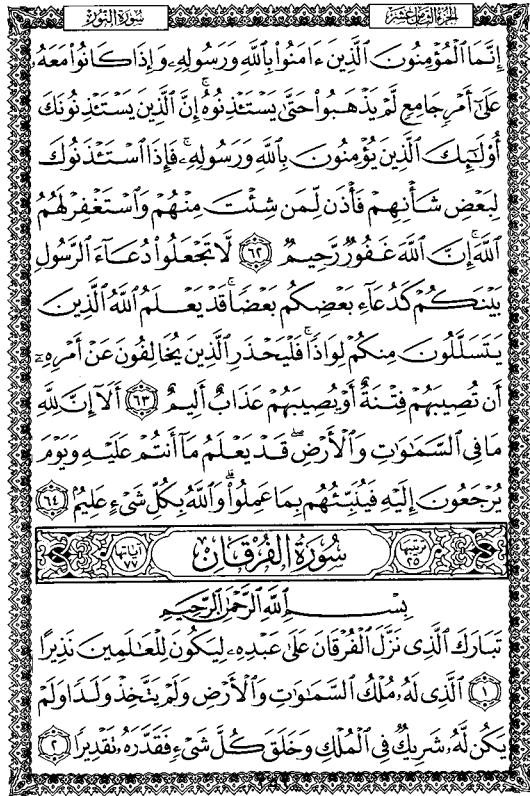 الجزء الثامن عشر سورة النور
إِنَّمَا ٱلْمُؤْمِنُونَ ٱلَّذِينَ ءَامَنُوا۟ بِٱللَّهِ وَرَسُولِهِۦ وَإِذَا كَانُوا۟ مَعَهُۥ
عَلَىٰٓ أَمْرٍ جَامِعٍ لَّمْ يَذْهَبُوا۟ حَتَّىٰ يَسْتَـْٔذِنُوهُ ۚ إِنَّ ٱلَّذِينَ يَسْتَـْٔذِنُونَكَ
أُو۟لَـٰٓئِكَ ٱلَّذِينَ يُؤْمِنُونَ بِٱللَّهِ وَرَسُولِهِۦ ۚ فَإِذَا ٱسْتَـْٔذَنُوكَ
لِبَعْضِ شَأْنِهِمْ فَأْذَن لِّمَن شِئْتَ مِنْهُمْ وَٱسْتَغْفِرْ لَهُمُ
ٱللَّهَ ۚ إِنَّ ٱللَّهَ غَفُورٌ رَّحِيمٌ ٦٢ لَّا تَجْعَلُوا۟ دُعَآءَ ٱلرَّسُولِ
بَيْنَكُمْ كَدُعَآءِ بَعْضِكُم بَعْضًا ۚ قَدْ يَعْلَمُ ٱللَّهُ ٱلَّذِينَ
يَتَسَلَّلُونَ مِنكُمْ لِوَاذًا ۚ فَلْيَحْذَرِ ٱلَّذِينَ يُخَالِفُونَ عَنْ أَمْرِهِۦٓ
أَن تُصِيبَهُمْ فِتْنَةٌ أَوْ يُصِيبَهُمْ عَذَابٌ أَلِيمٌ ٦٣ أَلَآ إِنَّ لِلَّهِ
مَا فِى ٱلسَّمَـٰوَٰتِ وَٱلْأَرْضِ ۖ قَدْ يَعْلَمُ مَآ أَنتُمْ عَلَيْهِ وَيَوْمَ
يُرْجَعُونَ إِلَيْهِ فَيُنَبِّئُهُم بِمَا عَمِلُوا۟ ۗ وَٱللَّهُ بِكُلِّ شَىْءٍ عَلِيمٌۢ ٦٤
ترتيبها ٢٥ سُورَةُ الْفُرْقَانِ آياتها ٧٧
بِسْمِ ٱللَّهِ ٱلرَّحْمَـٰنِ ٱلرَّحِيمِ
تَبَارَكَ ٱلَّذِى نَزَّلَ ٱلْفُرْقَانَ عَلَىٰ عَبْدِهِۦ لِيَكُونَ لِلْعَـٰلَمِينَ نَذِيرًا
١ ٱلَّذِى لَهُۥ مُلْكُ ٱلسَّمَـٰوَٰتِ وَٱلْأَرْضِ وَلَمْ يَتَّخِذْ وَلَدًا وَلَمْ
يَكُن لَّهُۥ شَرِيكٌ فِى ٱلْمُلْكِ وَخَلَقَ كُلَّ شَىْءٍ فَقَدَّرَهُۥ تَقْدِيرًا ٢